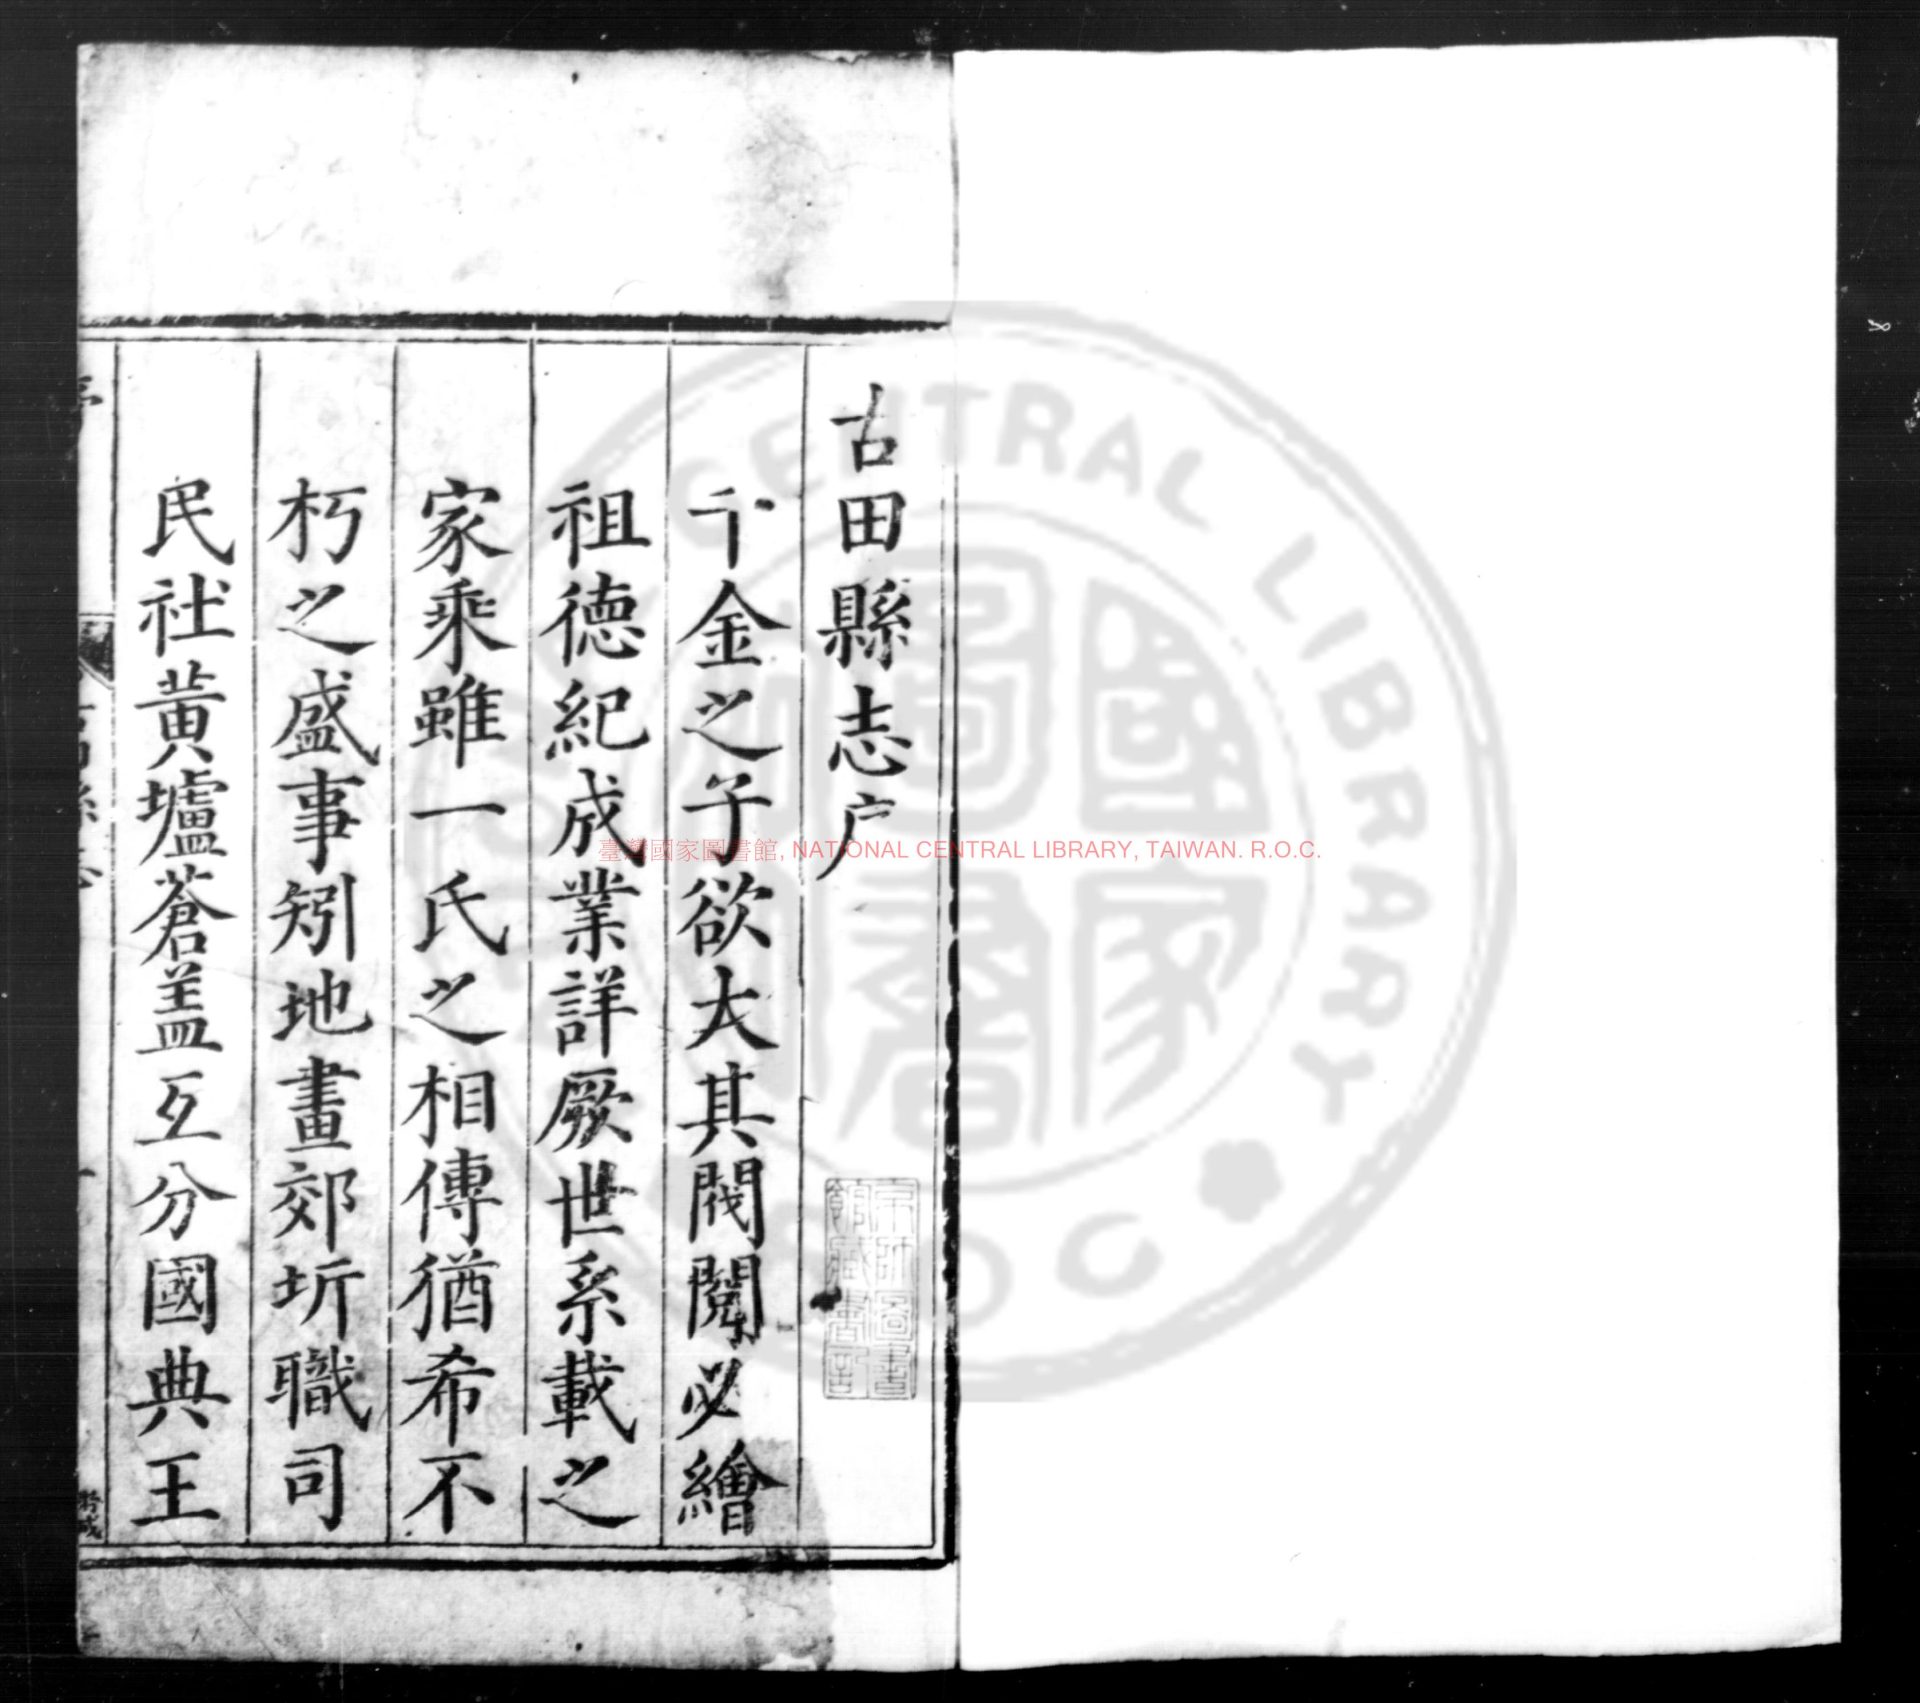 古田縣志序
千金之子欲大其閥閱必繪
祖德紀成業詳厥世系載之
家乘雖一氏之相傳猶希不
朽之盛事矧地畫郊圻職司
民社黃壚蒼蓋互分國典王
京師圖書
館藏書記
臺灣國家圖書館, NATIONAL CENTRAL LIBRARY, TAIWAN. R.O.C.
CENTRAL LIBRARY
國家圖書